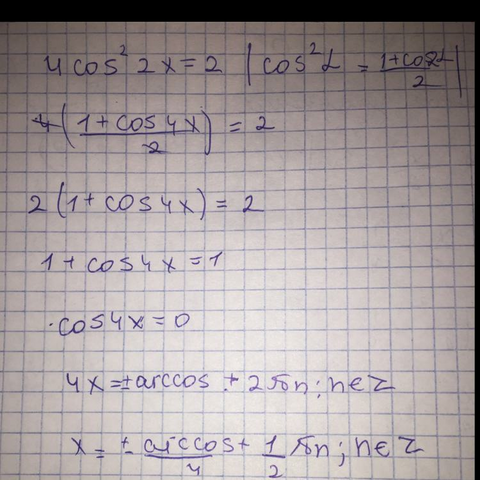 4 cos² 2x = 2 | cos²α = (1+cos2α)/2 |
4((1+cos4x)/2) = 2
2(1+cos4x) = 2
1+cos4x = 1
cos4x = 0
4x = ±arccos + 2πn; n∈Z
x = ± arccos/4 + 1/2 πn; n∈Z